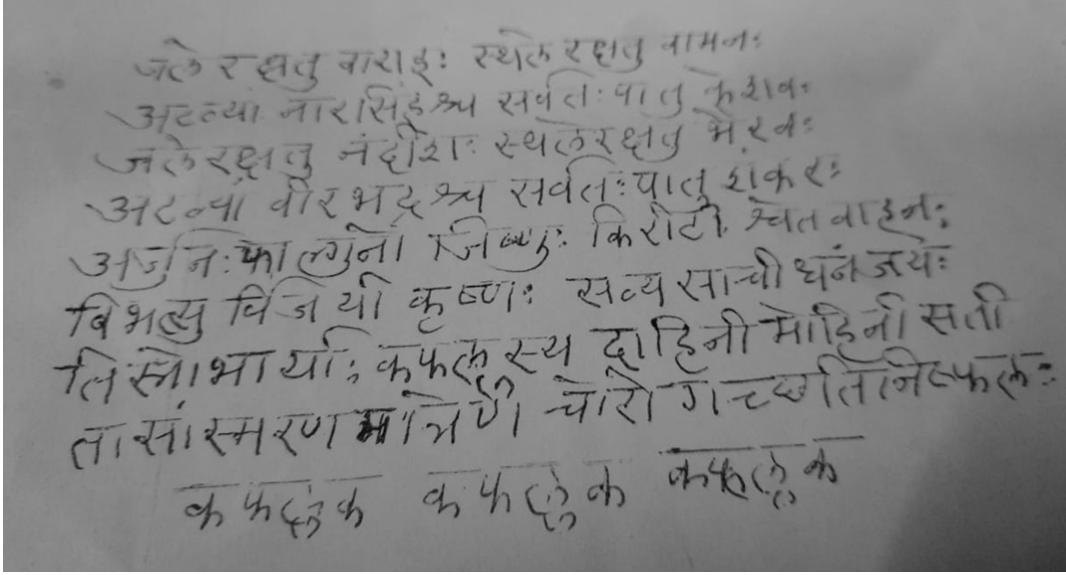 जले रक्षतु वाराहः स्थले रक्षतु वामनः
अटव्यां नारसिंहश्च सर्वतः पातु केशवः
जले रक्षतु नंदीशः स्थले रक्षतु भैरवः
अटव्यां वीरभद्रश्च सर्वतः पातु शंकरः
अर्जुनः फाल्गुनो जिष्णुः किरीटी श्वेतवाहनः
बिभत्सु विजयी कृष्णः सव्यसाची धनंजयः
तिस्त्रो भार्याः कफल्लस्य दाहिनी मोहिनी सती
तासां स्मरण मात्रेण चोरो गच्छति निष्फलः
कफल्लक कफल्लक कफल्लक